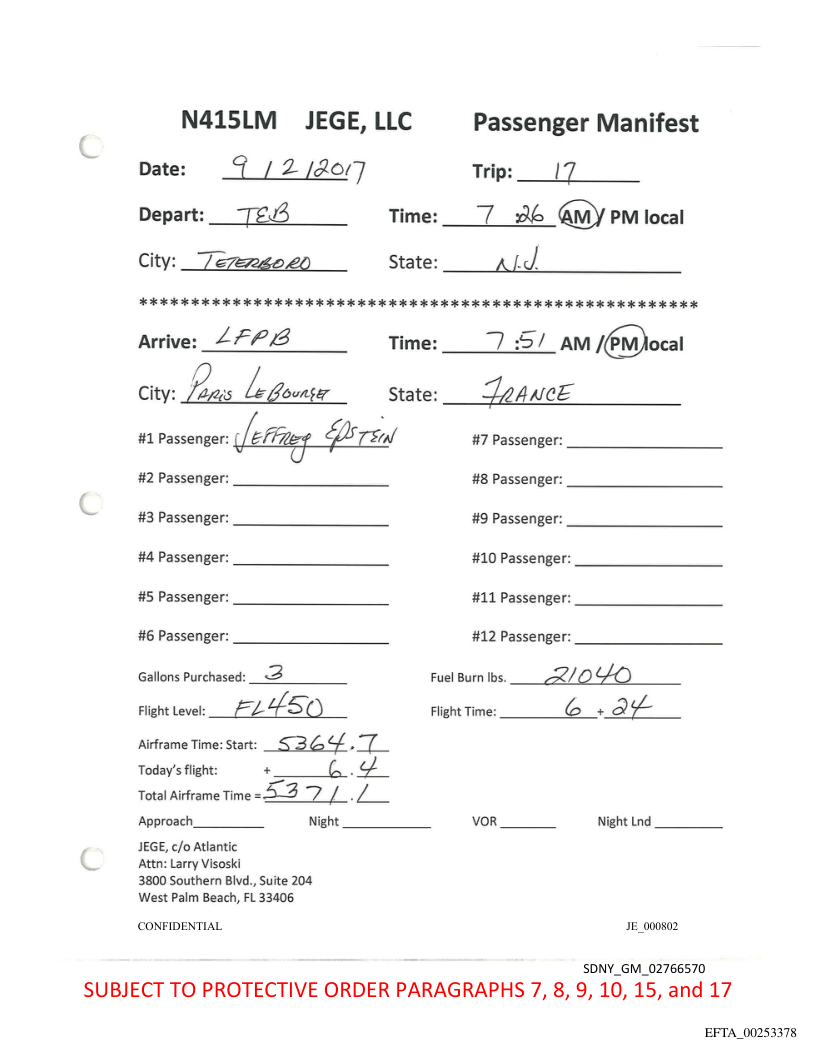 N415LM JEGE, LLC Passenger Manifest
Date: 9 / 2 / 2017 Trip: 17
Depart: TEB Time: 7 :26 AM / PM local
City: TETERBORO State: N.J.
******************************************************
Arrive: LFPB Time: 7 :51 AM / PM local
City: PARIS LEBOURGET State: FRANCE
#1 Passenger: JEFFREY EPSTEIN #7 Passenger:
#2 Passenger: #8 Passenger:
#3 Passenger: #9 Passenger:
#4 Passenger: #10 Passenger:
#5 Passenger: #11 Passenger:
#6 Passenger: #12 Passenger:
Gallons Purchased: 3 Fuel Burn lbs. 21040
Flight Level: FL450 Flight Time: 6 + 24
Airframe Time: Start: 5364.7
Today's flight: + 6.4
Total Airframe Time = 5371.1
Approach Night VOR Night Lnd
JEGE, c/o Atlantic
Attn: Larry Visoski
3800 Southern Blvd., Suite 204
West Palm Beach, FL 33406
CONFIDENTIAL JE_000802
SDNY_GM_02766570
SUBJECT TO PROTECTIVE ORDER PARAGRAPHS 7, 8, 9, 10, 15, and 17
EFTA_00253378